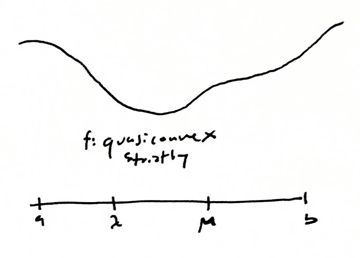 f: quasiconvex
strictly
a λ μ b